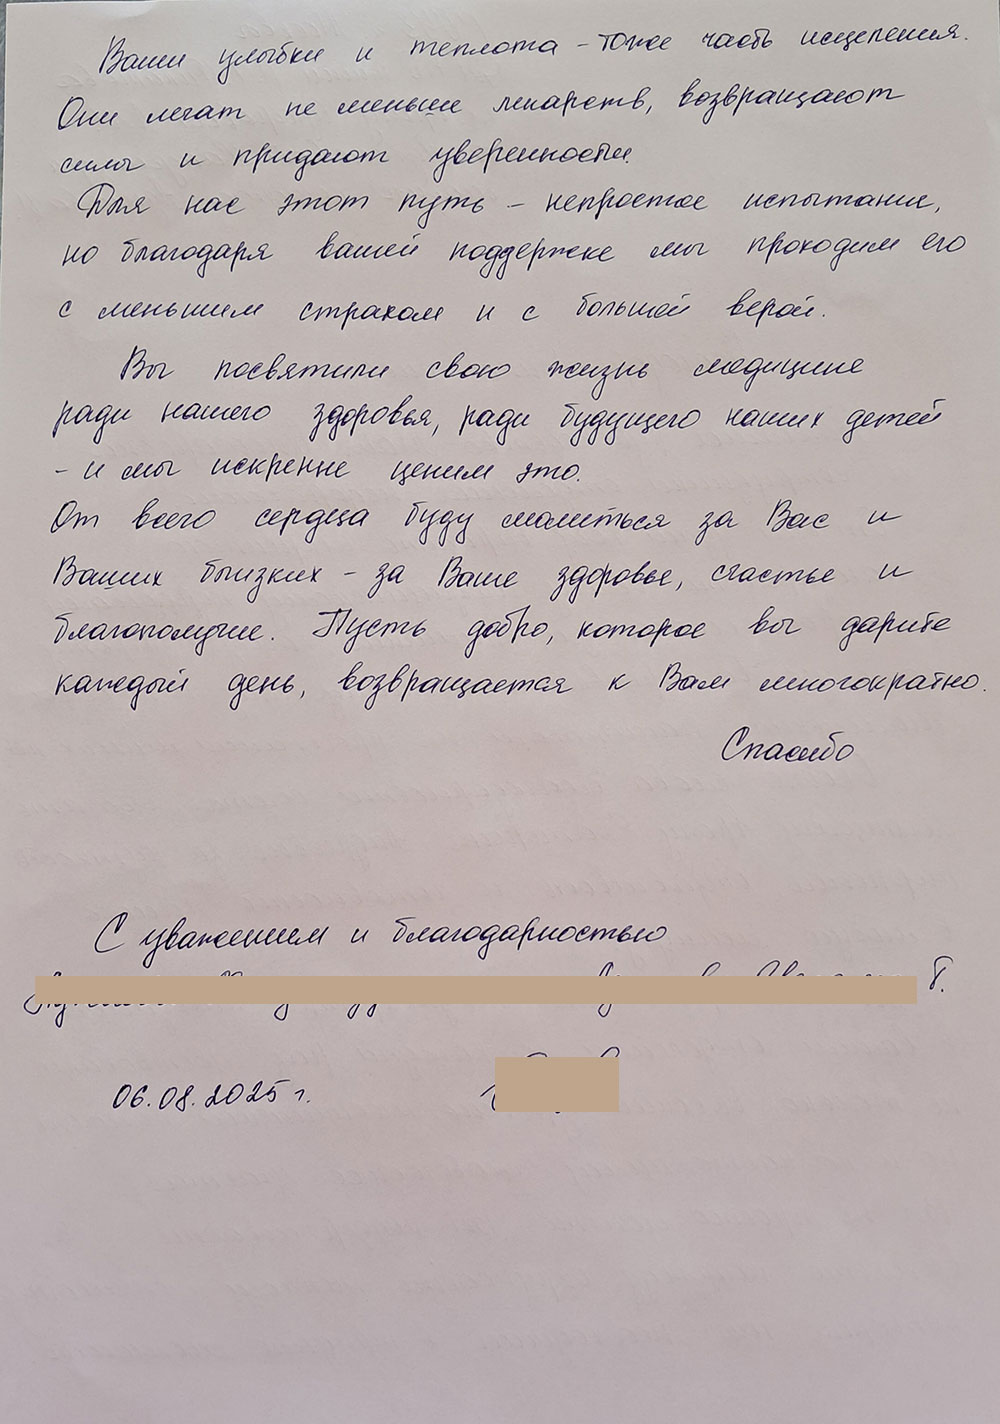 Ваши улыбки и теплота – тоже часть исцеления.
Они лечат не меньше лекарств, возвращают
силы и придают уверенности.
Для нас этот путь – непростое испытание,
но благодаря вашей поддержке мы проходим его
с меньшим страхом и с большей верой.
Вы посвятили свою жизнь медицине
ради нашего здоровья, ради будущего наших детей
– и мы искренне ценим это.
От всего сердца буду молиться за Вас и
Ваших близких – за Ваше здоровье, счастье и
благополучие. Пусть добро, которое вы дарите
каждый день, возвращается к Вам многократно.
Спасибо
С уважением и благодарностью
Г.
06.08.2025 г.